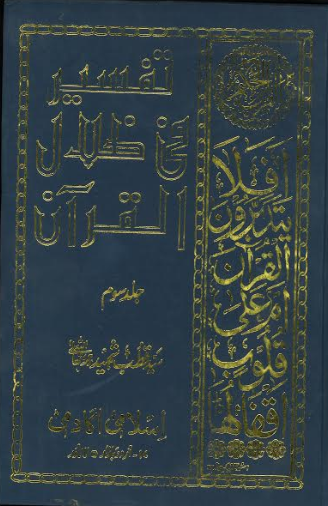 تفسیر
فی ظلال
القرآن
جلد سوم
سید قطب شہید
اسلامی اکادمی
افلا
یتدبرون
القرآن
ام علی
قلوب
اقفالها